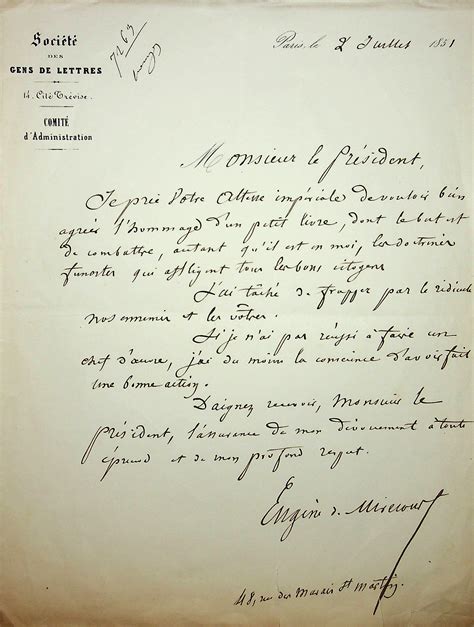 Société
DES
GENS DE LETTRES
14. Cité Trévise.
COMITÉ
d'Administration
7263
Paris, le 2 Juillet 1851
Monsieur le Président,
Je prie Votre Altesse impériale de vouloir bien
agréer l'hommage d'un petit livre, dont le but est
de combattre, autant qu'il est en moi, les doctrines
funestes qui affligent tous les bons citoyens
J'ai tâché de frapper par le ridicule
nos ennemis et les vôtres.
Si je n'ai pas réussi à faire un
chef d'œuvre, j'ai du moins la conscience d'avoir fait
une bonne action.
Daignez recevoir, Monsieur le
président, l'assurance de mon dévouement à toute
épreuve et de mon profond respect.
Eugène de Mirecourt
48, rue des Marais St Martin.